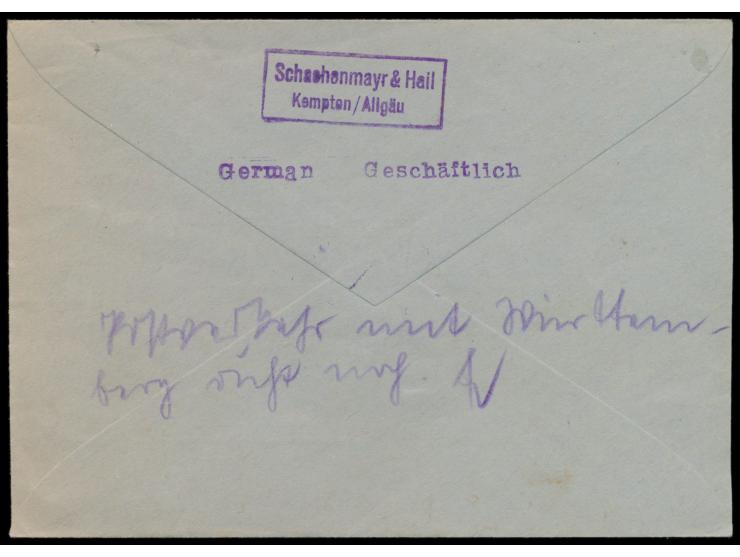 Schachenmayr & Hail
Kempten/Allgäu
German Geschäftlich
Postverkehr mit Württem-
berg ruht noch.